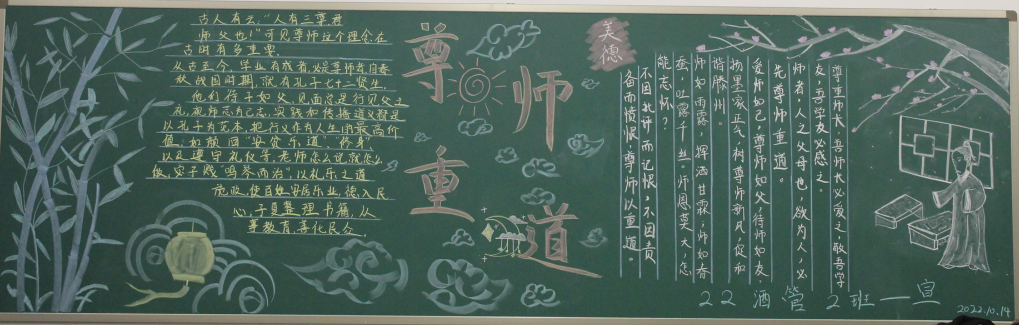 古人有云："人有三尊，君
师父也！"可见尊师这个理念在
古时有多重要
从古至今，学业有成者，必是尊师者，自春
秋战国时期，就有孔子七十二贤生，
他们待子如父，见面总是行见父之
礼，视师志为己志，实践和传播道义，
以孔子为范本，把行义作为人生的最高价
值，如颜回"安贫乐道、修身
以及遵守礼仪等，老师怎么说就怎么
做，宓子贱"鸣琴而治"，以礼乐之道
施政，使百姓安居乐业，德入民
心，子夏整理书籍，从
事教育，善化民众.
尊师重道
美德
尊重师长，吾师长必爱之，敬吾学
友，吾学友必感之。
师者，人之父母也，欲为人，必
先尊师重道。
爱师如己，尊师如父，待师如友，
扬墨家正气，树尊师新风，促和
谐滕州。
师如雨露，挥洒甘霖，师如春
蚕，吐露千丝，师恩莫大，怎
能忘怀？
不因批评而记恨，不因责
备而愤恨，尊师以重道。
22酒管2班一宣
2022.10.14